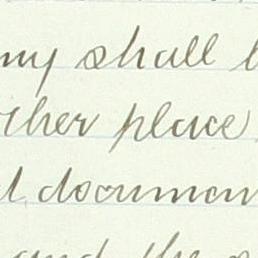 ny shall
ther place
documen
and the